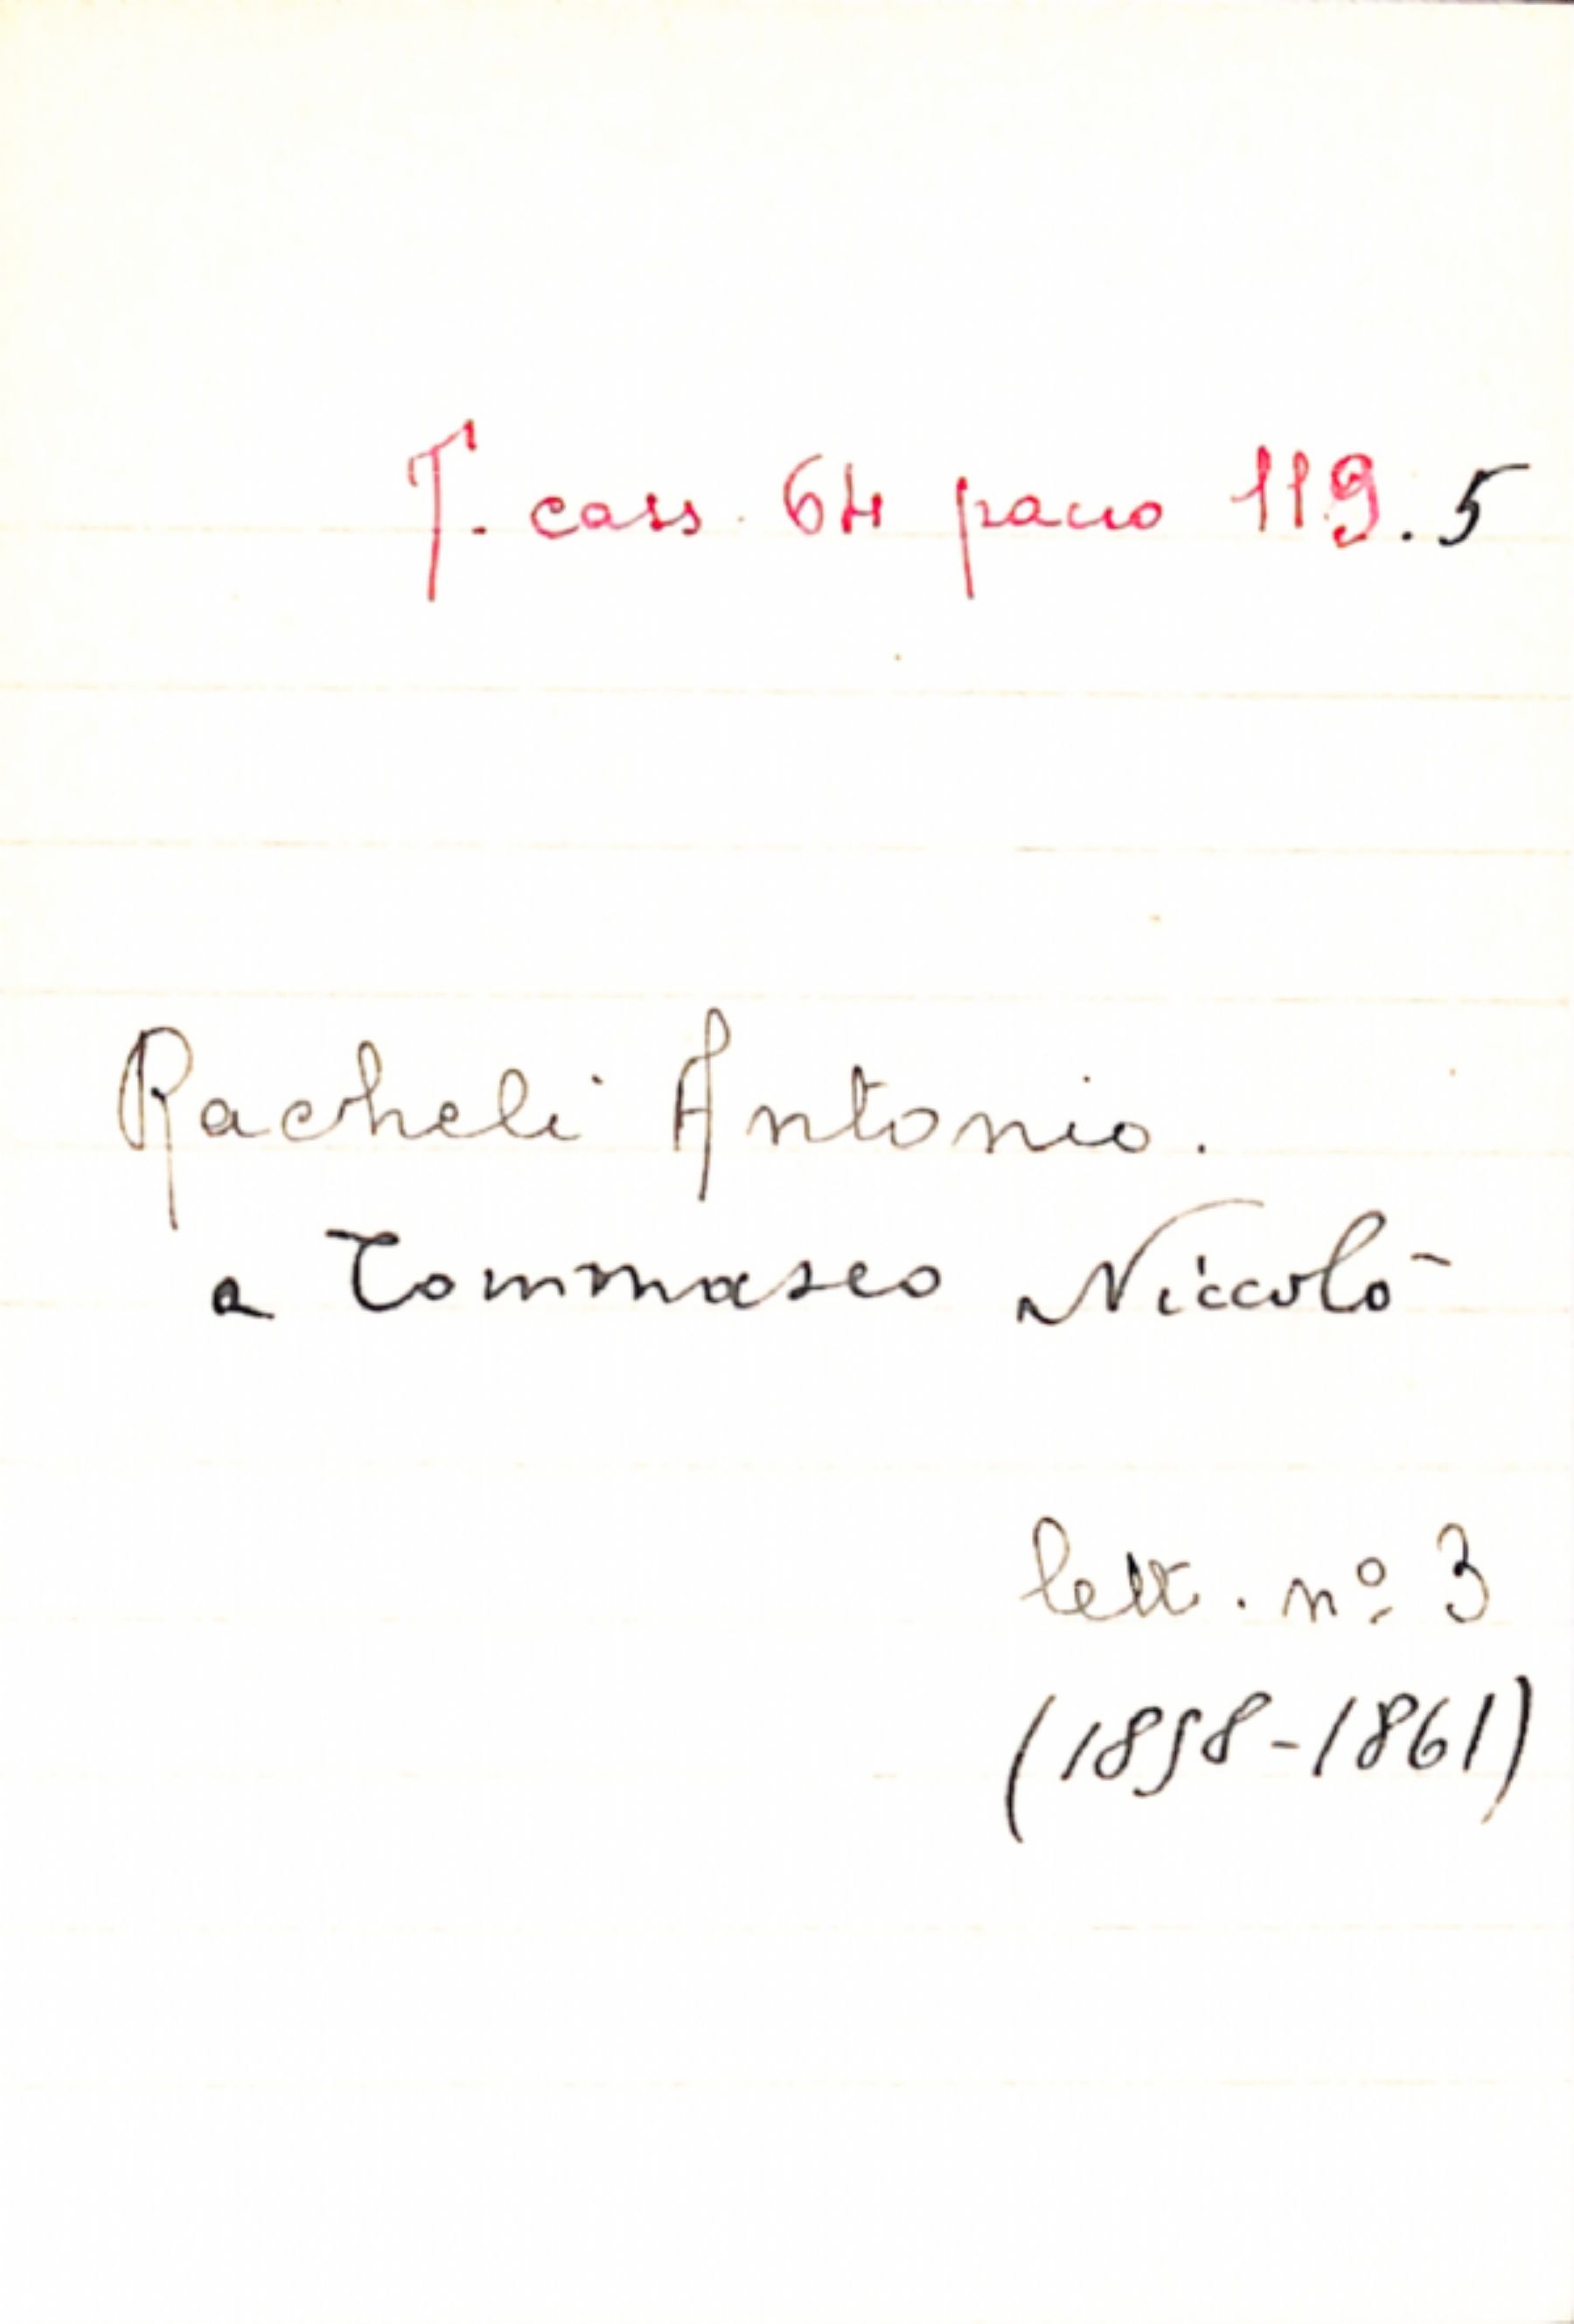 T. cass. 64 pacco 119.5
Racheli Antonio.
a Tommaseo Niccolò
lett. nº 3
(1858-1861)